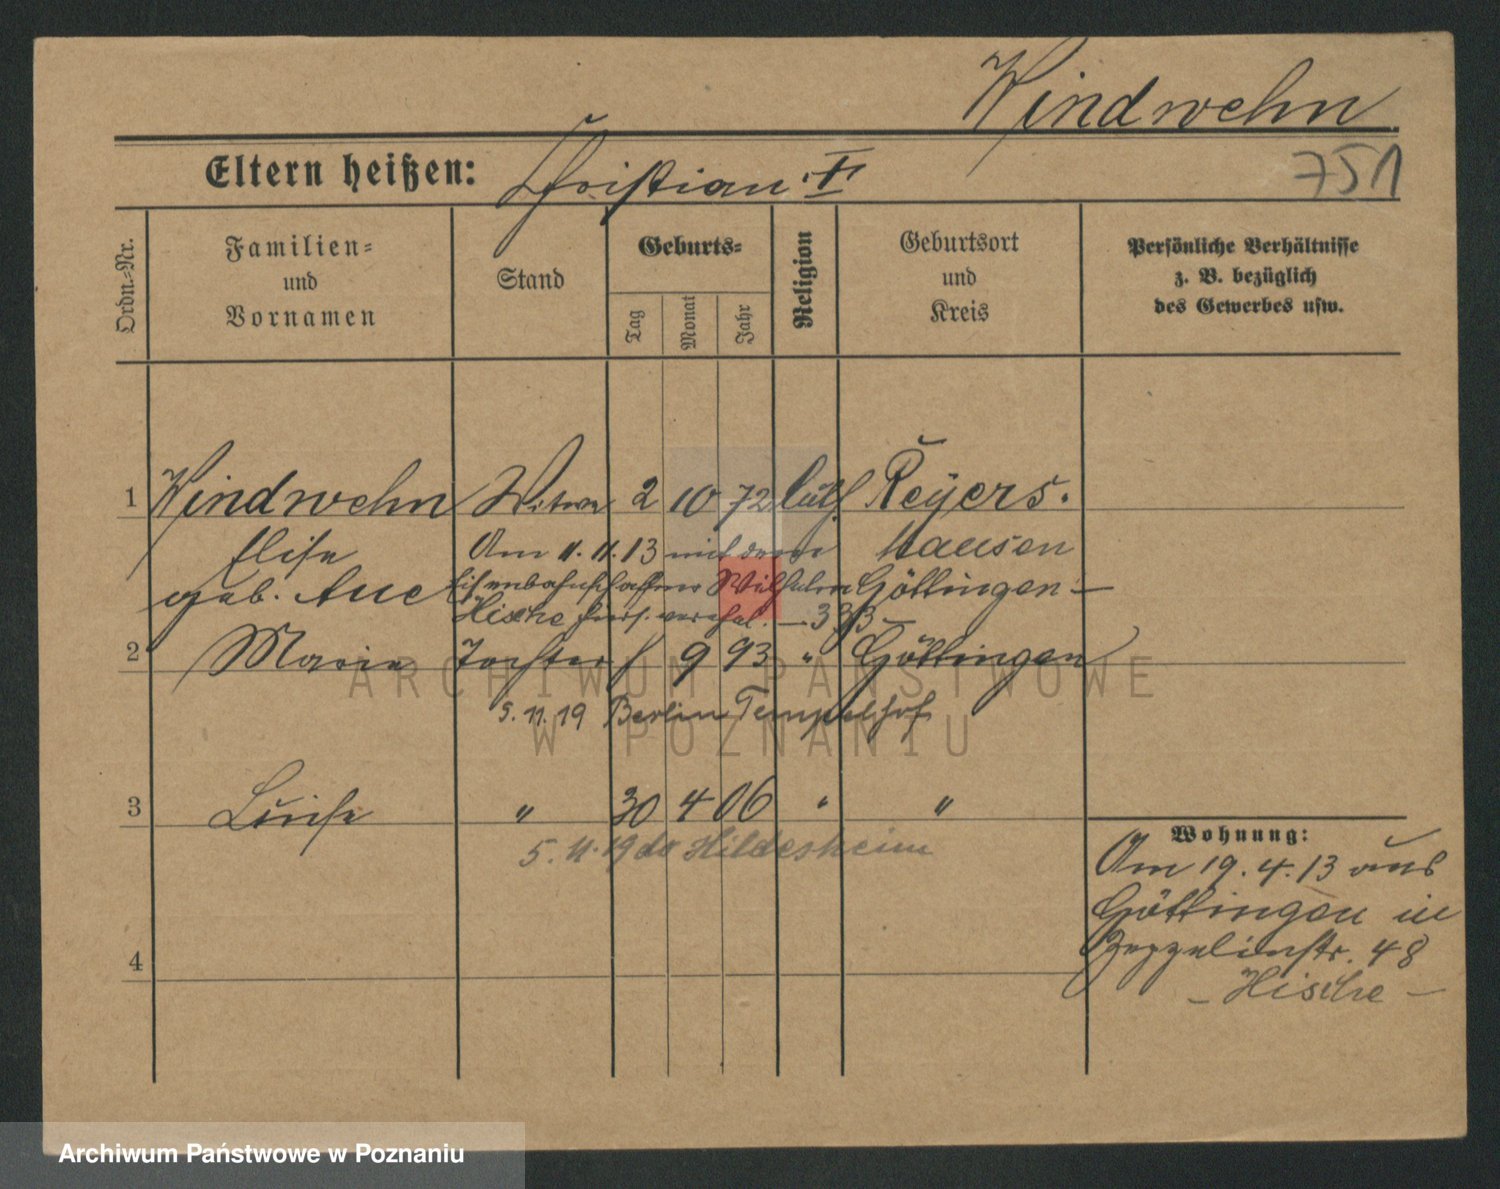 Windwehn
Eltern heißen: Christian. †
751
Ordn.-Nr.
Familien-
und
Vornamen
Stand
Geburts-
Tag
Monat
Jahr
Religion
Geburtsort
und
Kreis
Persönliche Verhältnisse
z. B. bezüglich
des Gewerbes usw.
1 Windwehn Witwe 2 10 72 luth. Reyers.
Elise Am 11.11.13 mit dem hausen
geb. Aue Eisenbahnschaffner Wilhelm Göttingen -
Hische hiers. verehel.
2 Marie Tochter 9 93 " Göttingen
5.11.19 Berlin Tempelhof
3 Luise " 30 4 06 " "
5.11.19 do Hildesheim
4
Wohnung:
Am 19.4.13 aus
Göttingen in
Zeppelinstr. 48
- Hische -
ARCHIWUM PAŃSTWOWE
W POZNANIU
Archiwum Państwowe w Poznaniu